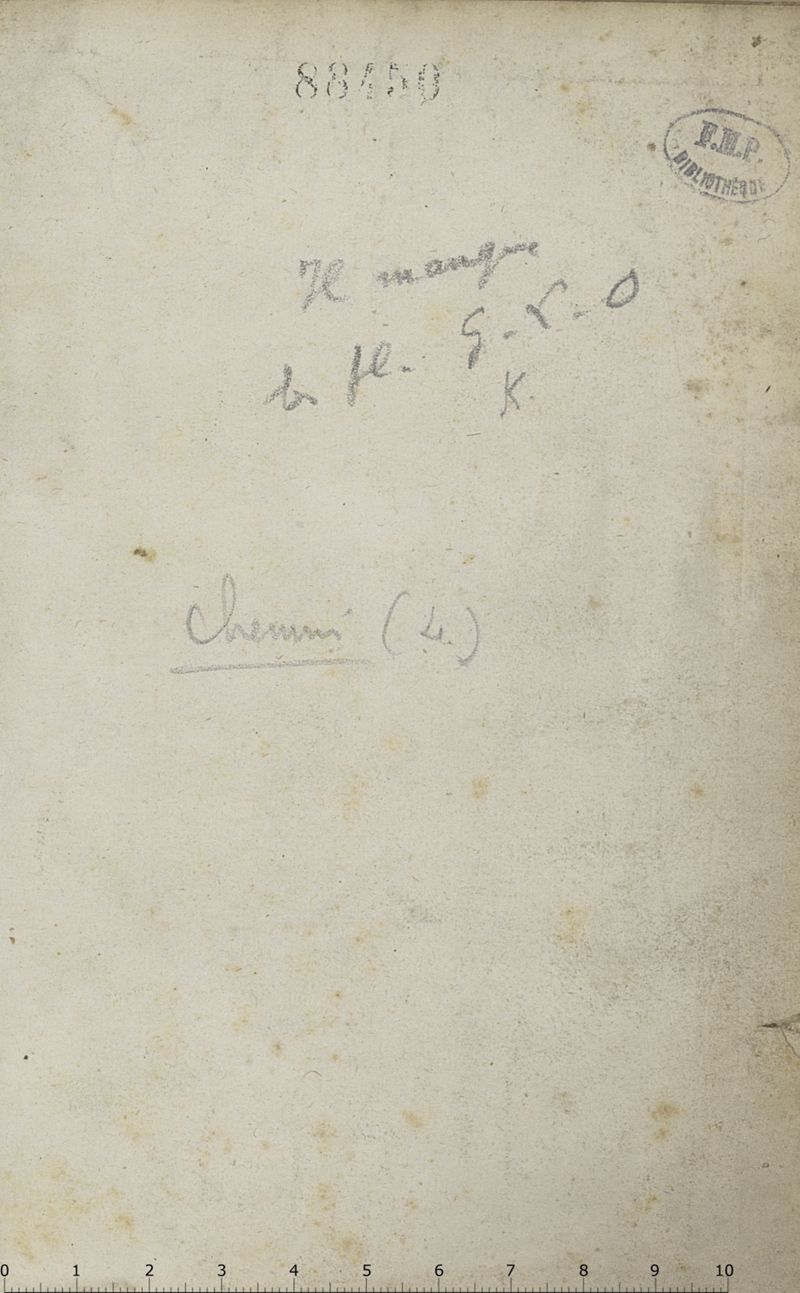 88450
F.M.P.
BIBLIOTHÈQUE
Il manque
les pl. G. L. O
K.
(L.)
0 1 2 3 4 5 6 7 8 9 10